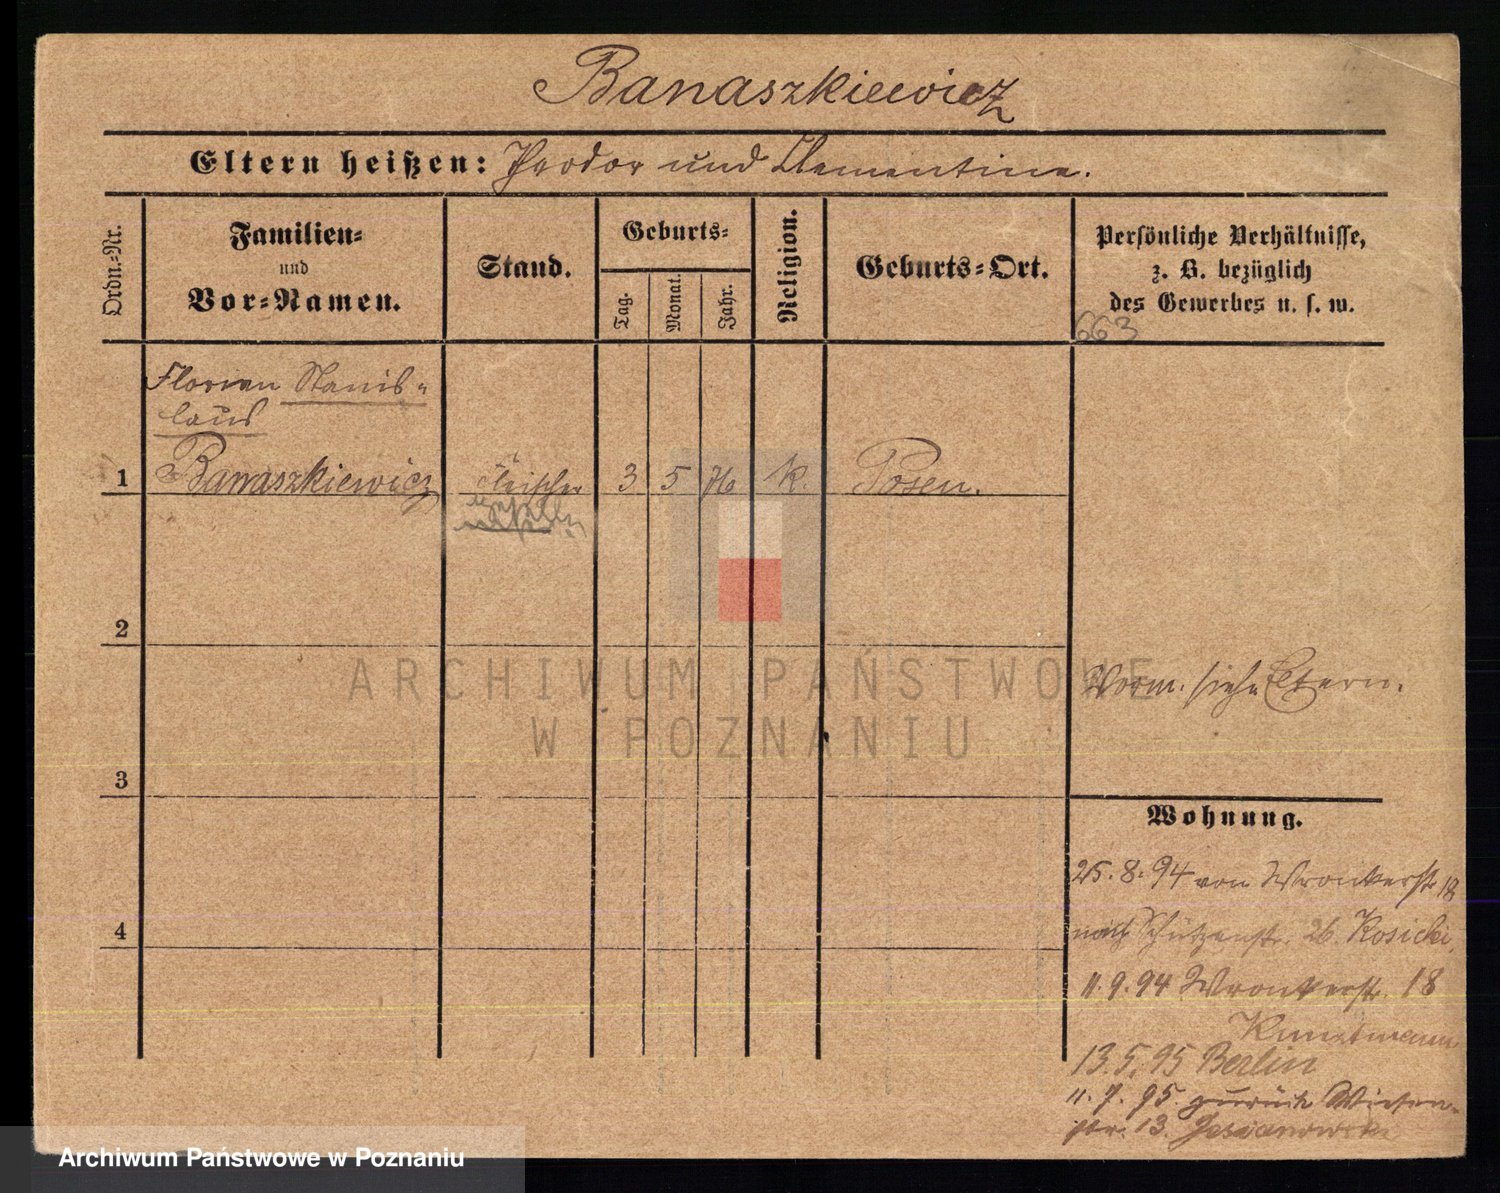 Banaszkiewicz
Eltern heißen: Theodor und Clementine.
Ordn.-Nr.
Familien- und Vor-Namen.
Stand.
Geburts-
Tag.
Monat.
Jahr.
Religion.
Geburts-Ort.
Persönliche Verhältnisse,
z. B. bezüglich
des Gewerbes u. s. w.
663
Florian Stanis-
laus
1 Banaszkiewicz Fleischer 3 5 76 k. Posen.
2
Vorm. siehe Eltern.
3
Wohnung.
25.8.94 von Wronkerstr 18
4
nach Schützenstr. 26. Kosicki,
11.9.94 Wronkerstr. 18
Kunstmann
13.5.95 Berlin
11.7.95. zurück Wiesen-
str. 13.
ARCHIWUM PAŃSTWOWE
W POZNANIU
Archiwum Państwowe w Poznaniu